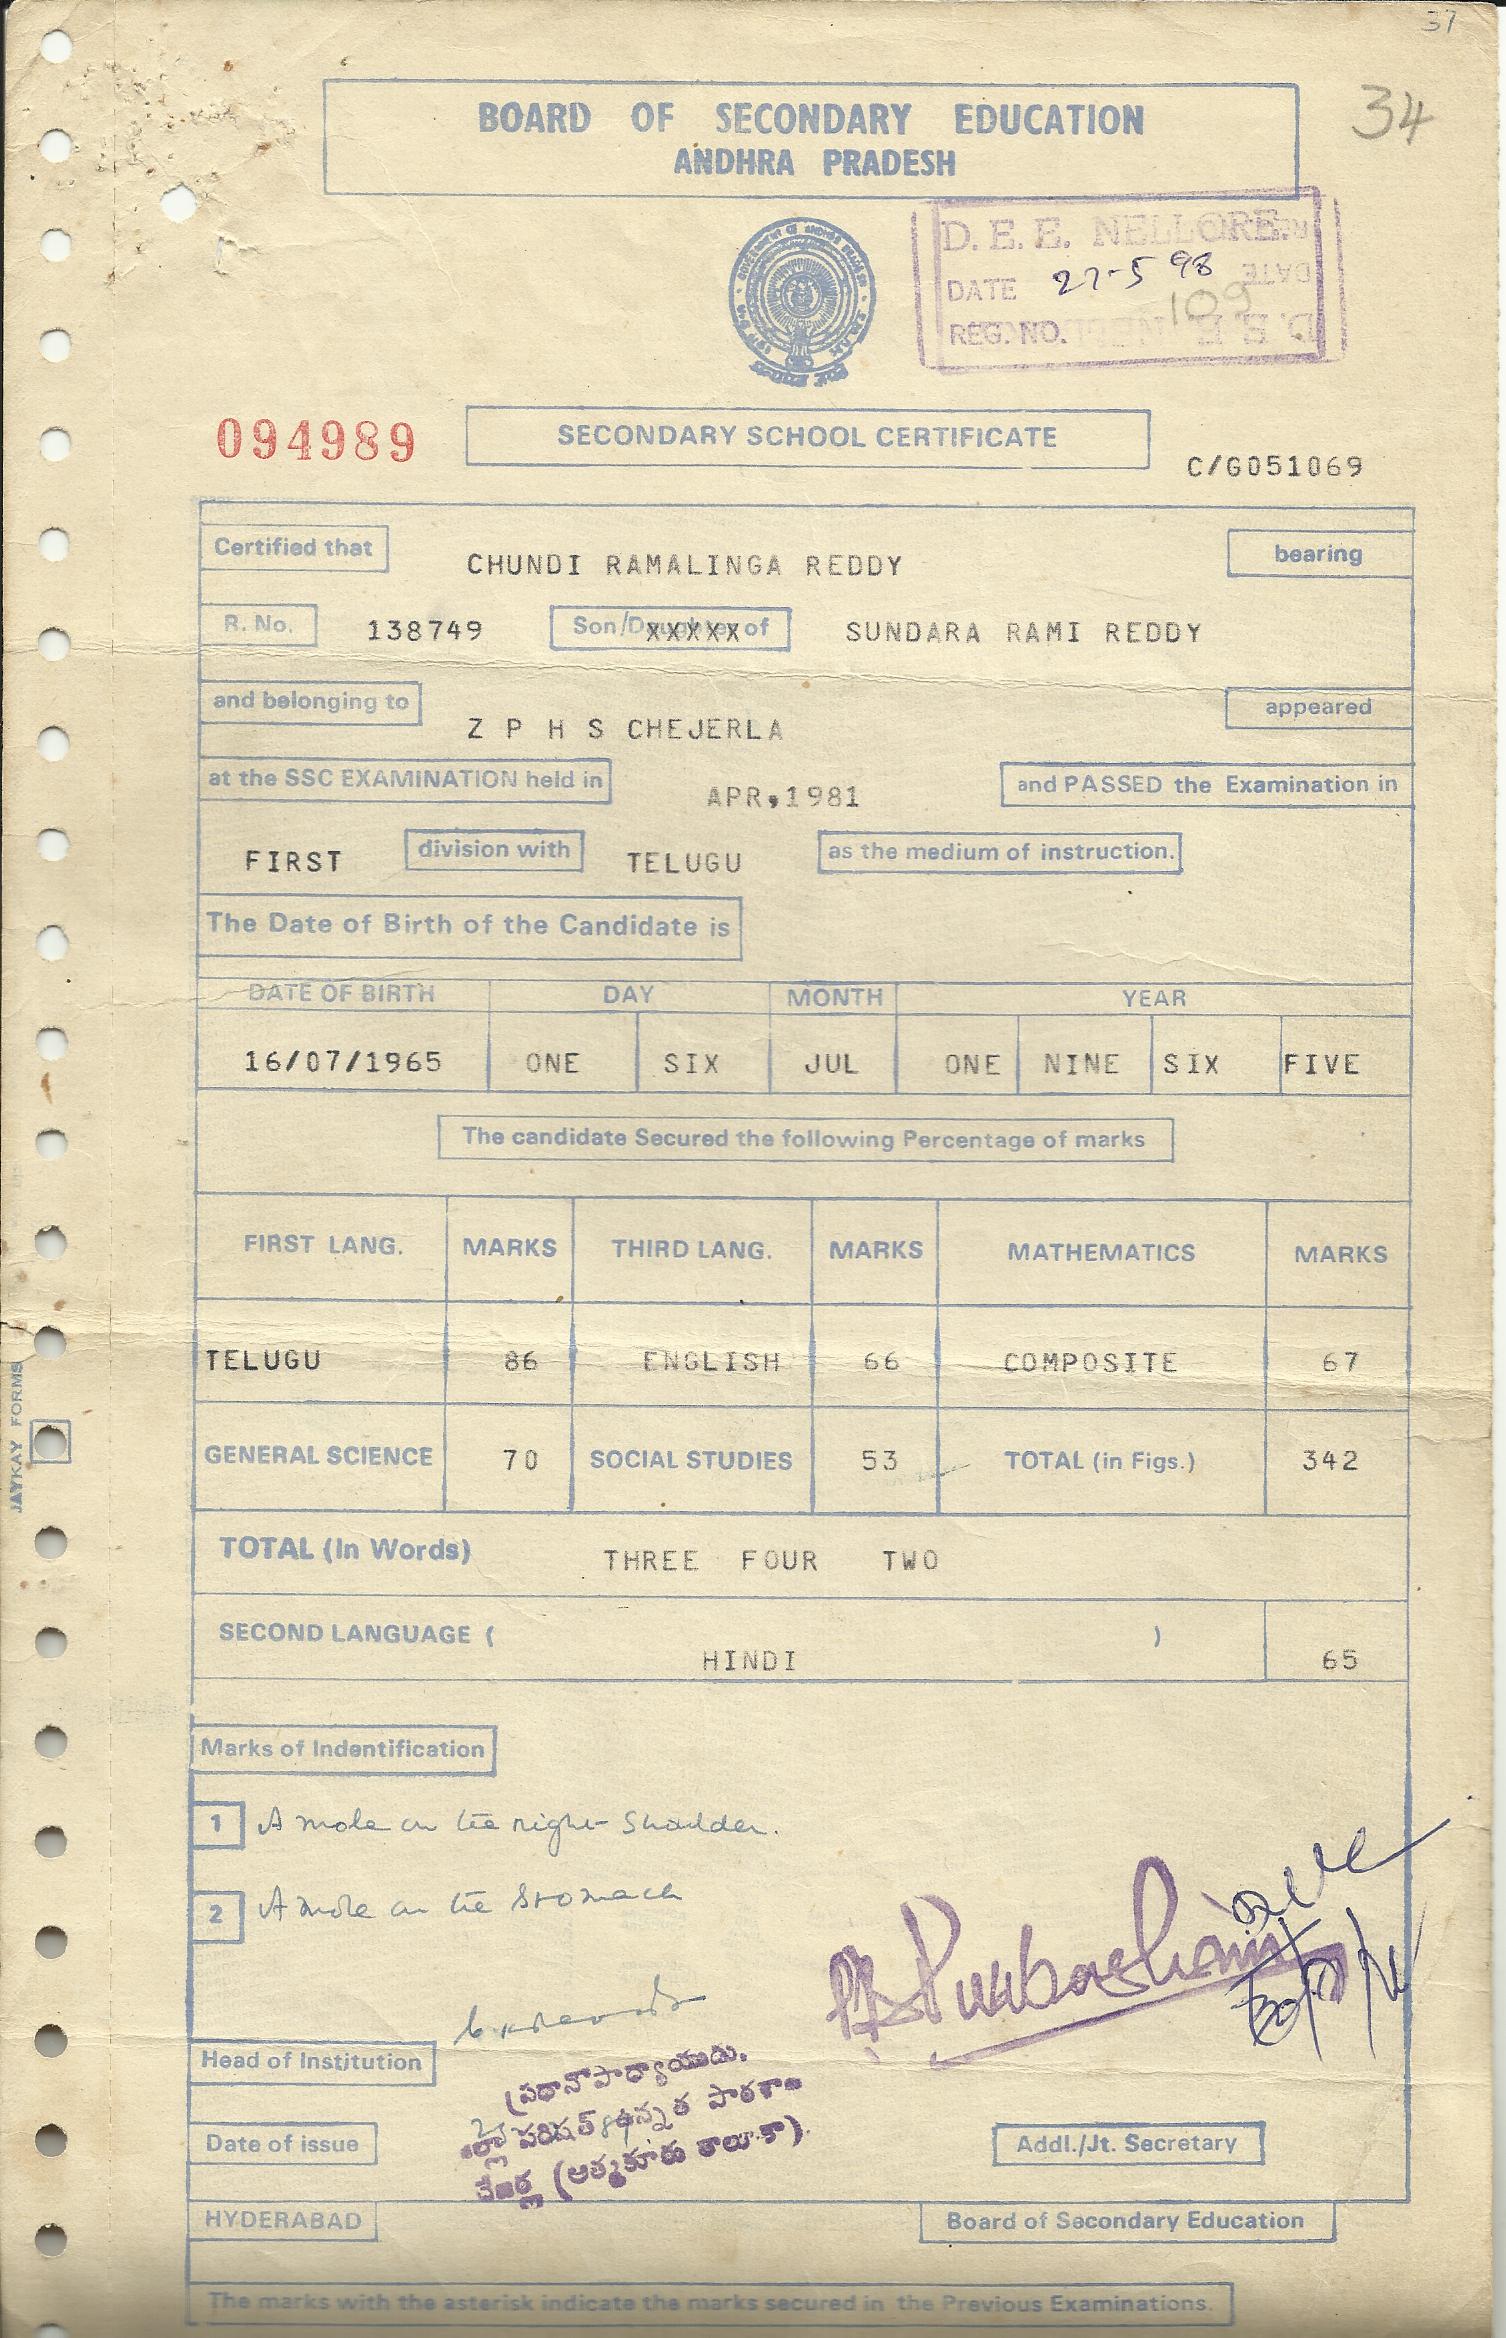 37
34
BOARD OF SECONDARY EDUCATION
ANDHRA PRADESH
D. E. E. NELLORE.
DATE 27-5 98
REG. NO. 109
094989
SECONDARY SCHOOL CERTIFICATE
C/G051069
Certified that CHUNDI RAMALINGA REDDY bearing
R. No. 138749 Son/Daughter of SUNDARA RAMI REDDY
and belonging to Z P H S CHEJERLA appeared
at the SSC EXAMINATION held in APR,1981 and PASSED the Examination in
FIRST division with TELUGU as the medium of instruction.
The Date of Birth of the Candidate is
DATE OF BIRTH DAY MONTH YEAR
16/07/1965 ONE SIX JUL ONE NINE SIX FIVE
The candidate Secured the following Percentage of marks
FIRST LANG. MARKS THIRD LANG. MARKS MATHEMATICS MARKS
TELUGU 86 ENGLISH 66 COMPOSITE 67
GENERAL SCIENCE 70 SOCIAL STUDIES 53 TOTAL (in Figs.) 342
JAYKAY FORMS
TOTAL (In Words) THREE FOUR TWO
SECOND LANGUAGE ( HINDI ) 65
Marks of Indentification
1 A mole on the right shoulder.
2 A mole on the stomach
Head of Institution
ప్రధానోపాధ్యాయుడు.
పరిషత్ ఉన్నత పాఠశాల
చేజర్ల (ఆత్మకూరు తాలూకా).
Date of issue Addl./Jt. Secretary
HYDERABAD Board of Secondary Education
The marks with the asterisk indicate the marks secured in the Previous Examinations.